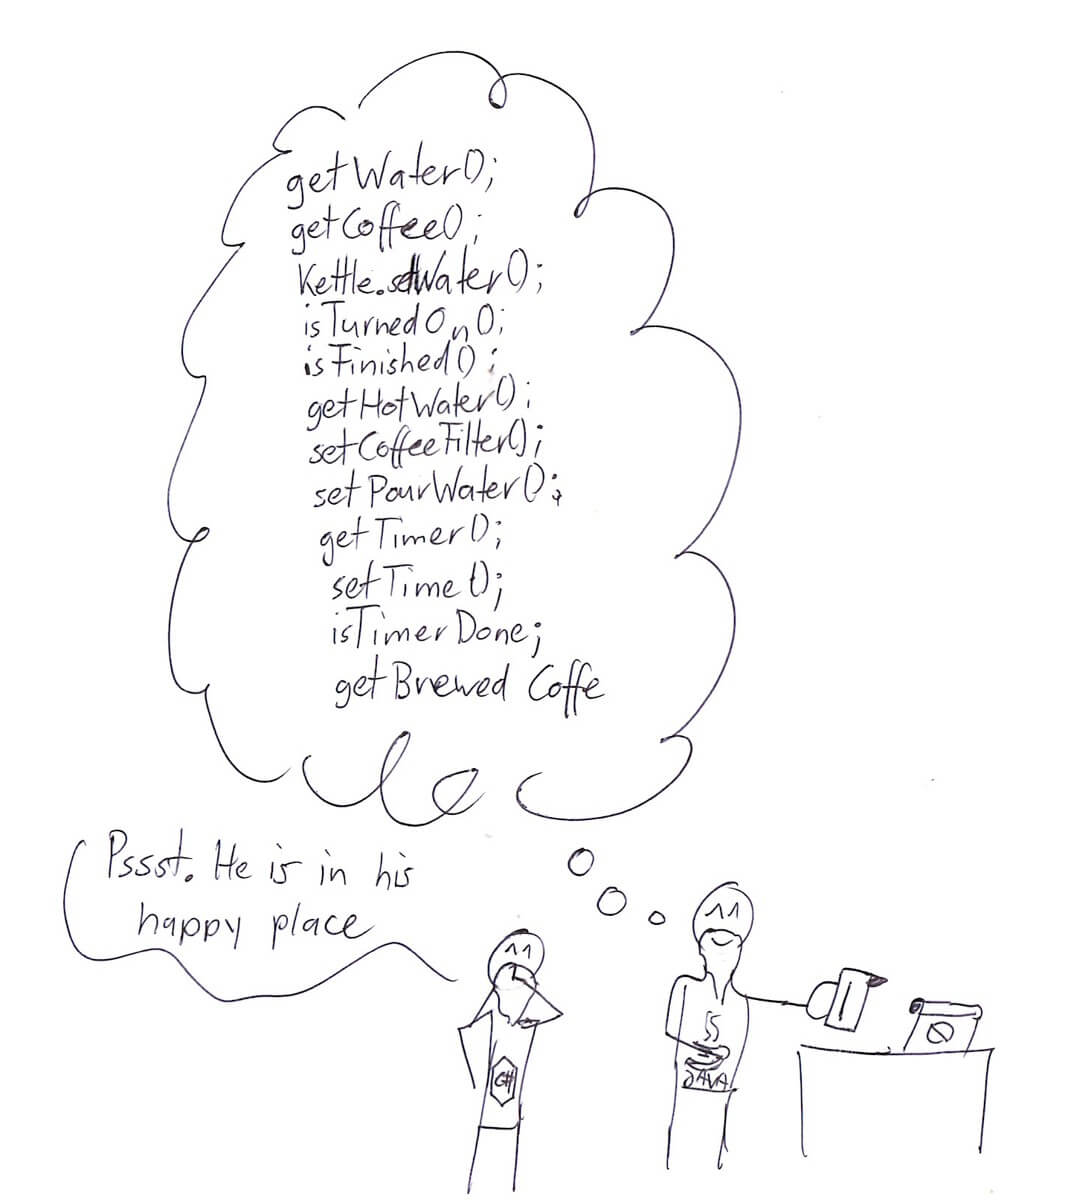 getWater();
getCoffee();
Kettle.setWater();
isTurnedOn();
isFinished();
getHotWater();
setCoffeeFilter();
setPourWater();
getTimer();
setTime();
isTimerDone;
getBrewed Coffe
Pssst. He is in his
happy place
C#
JAVA